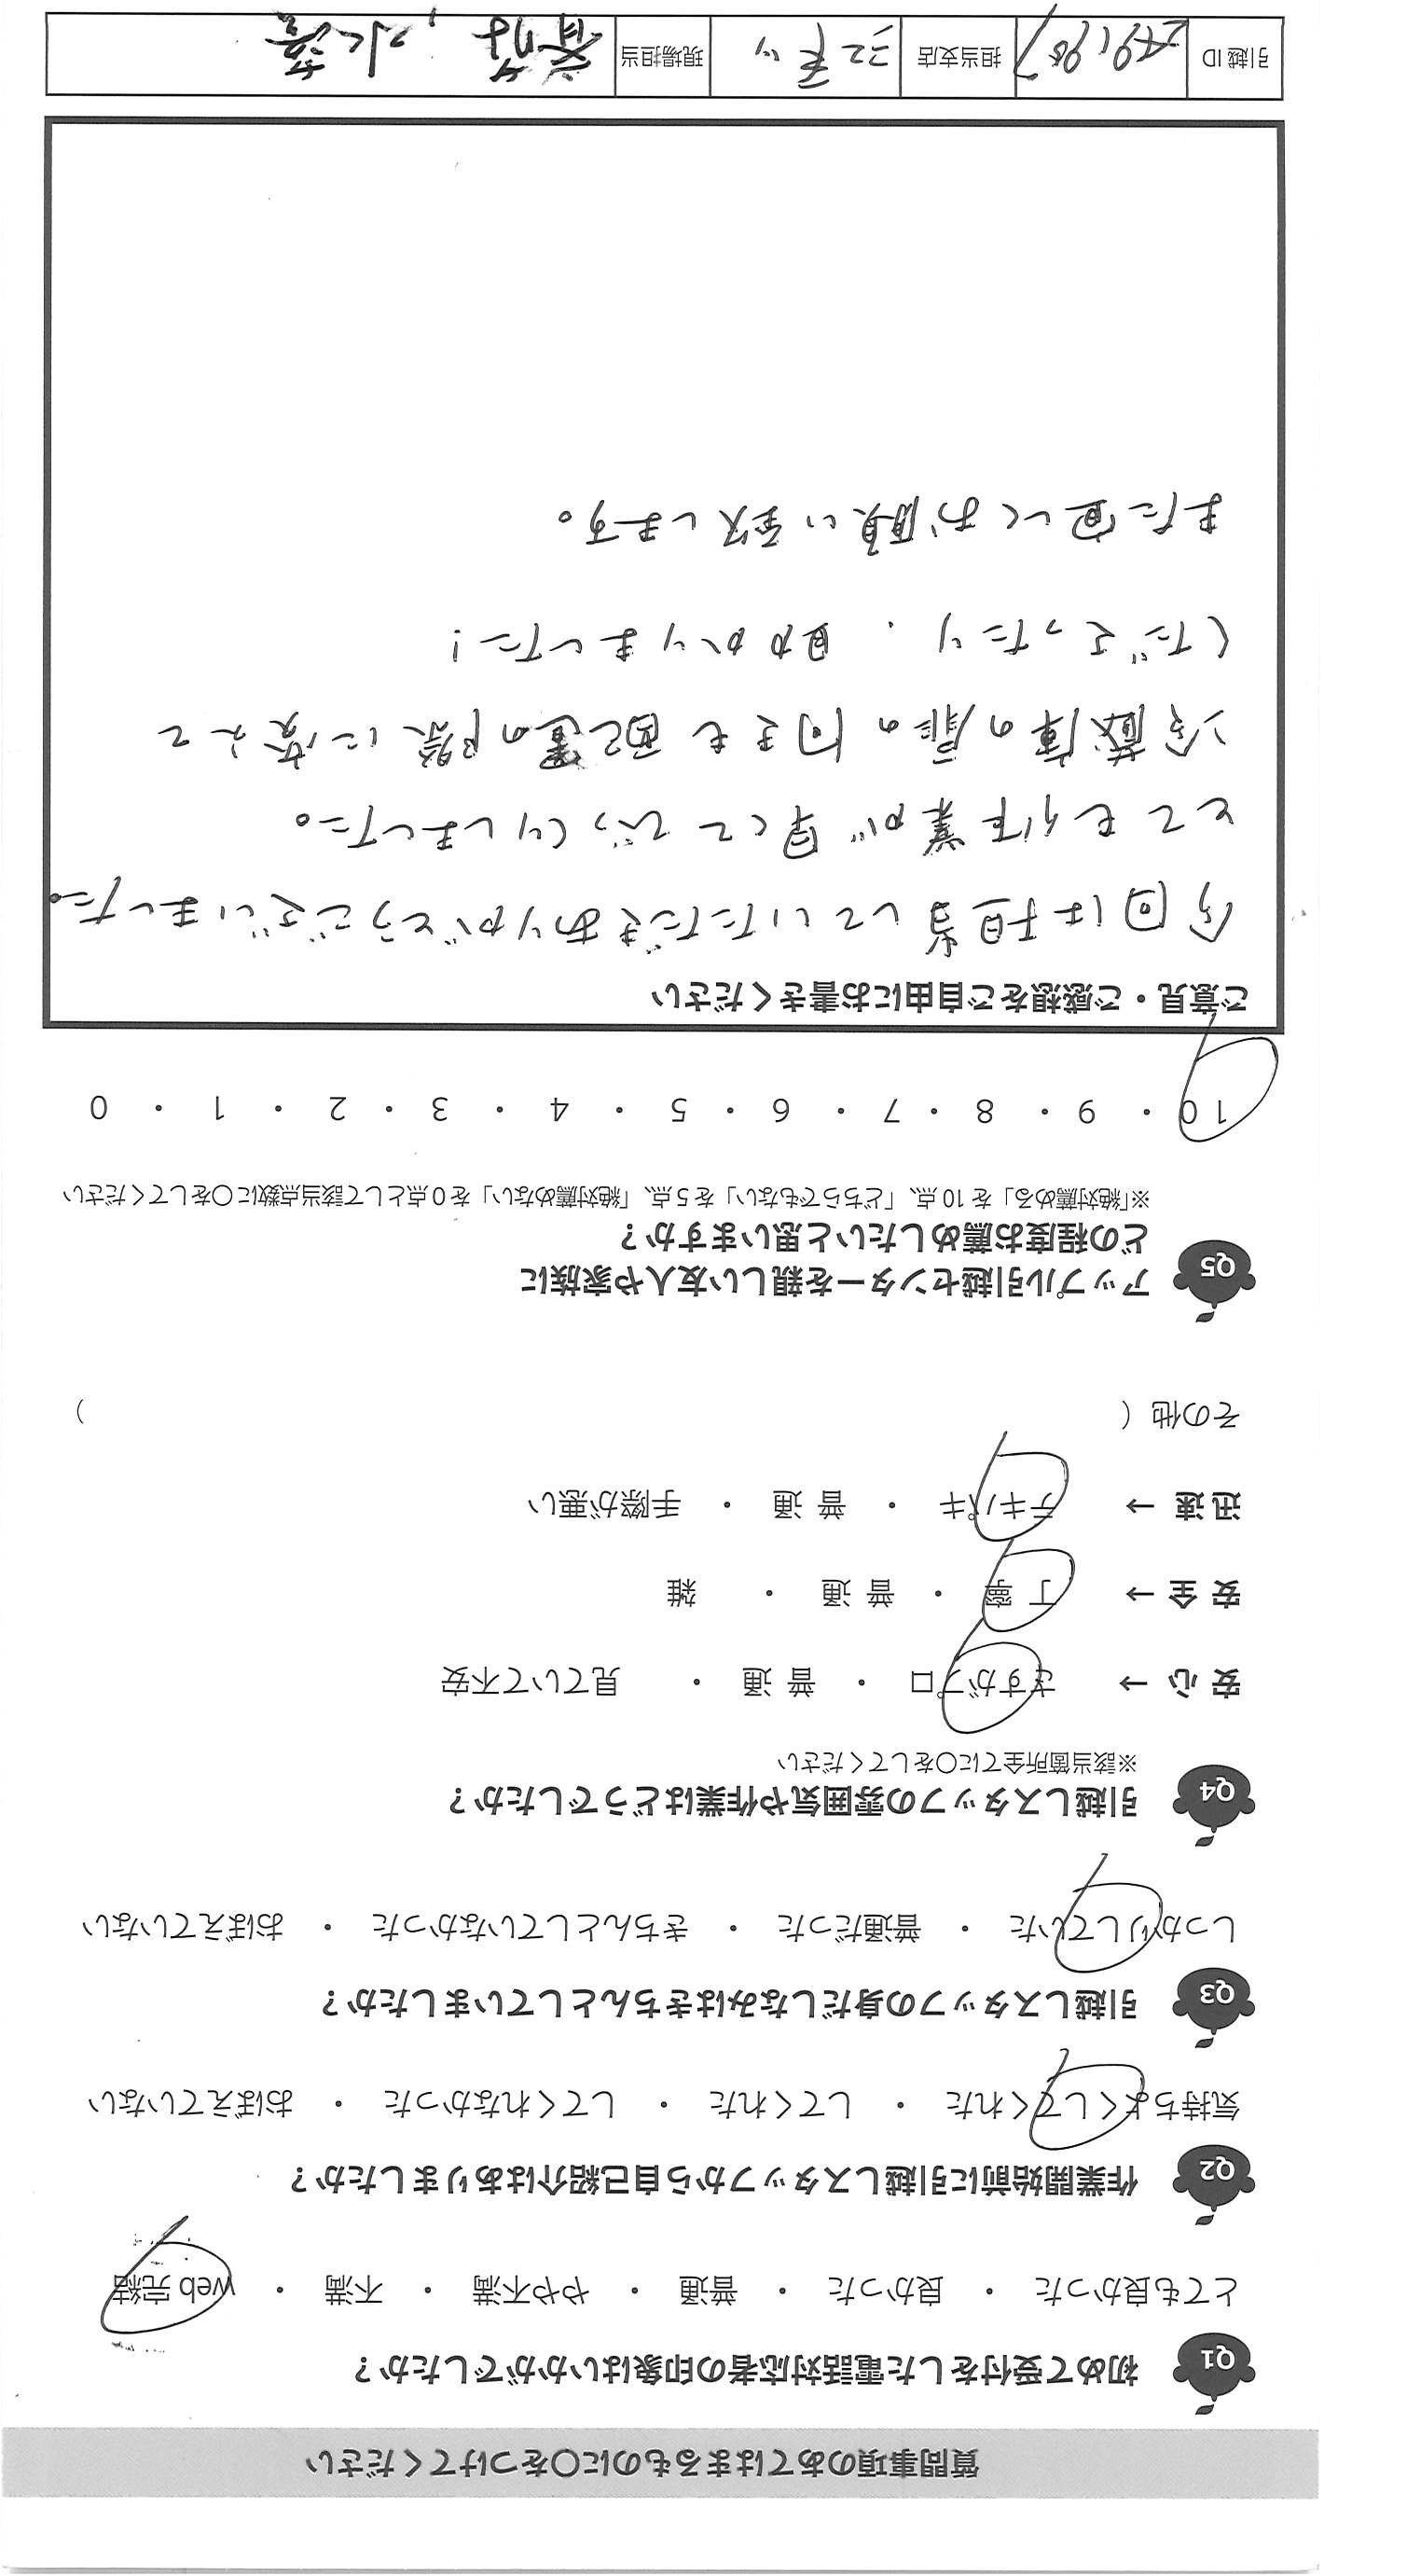 質問事項のあてはまるものに〇をつけてください
Q1 初めて受付をした電話対応者の印象はいかがでしたか？
とても良かった ・ 良かった ・ 普通 ・ やや不満 ・ 不満 ・ web完結
Q2 作業開始前に引越しスタッフから自己紹介はありましたか？
気持ちよくしてくれた ・ してくれた ・ してくれなかった ・ おぼえていない
Q3 引越しスタッフの身だしなみはきちんとしていましたか？
しっかりしていた ・ 普通だった ・ きちんとしていなかった ・ おぼえていない
Q4 引越しスタッフの雰囲気や作業はどうでしたか？
※該当箇所全てに〇をしてください
安 心 → さすがプロ ・ 普 通 ・ 見ていて不安
安 全 → 丁 寧 ・ 普 通 ・ 雑
迅 速 → テキパキ ・ 普 通 ・ 手際が悪い
その他（ ）
Q5 アップル引越センターを親しい友人や家族に
どの程度お薦めしたいと思いますか？
※「絶対薦める」を10点、「どちらでもない」を5点、「絶対薦めない」を0点として該当点数に〇をしてください
10 ・ 9 ・ 8 ・ 7 ・ 6 ・ 5 ・ 4 ・ 3 ・ 2 ・ 1 ・ 0
ご意見・ご感想をご自由にお書きください
今回は担当していただきありがとうございました。
とても作業が早くてびっくりしました。
冷蔵庫の扉の向きも配置の際に変えて
くださったり、助かりました！
また宜しくお願い致します。
引越ID 担当支店 現場担当